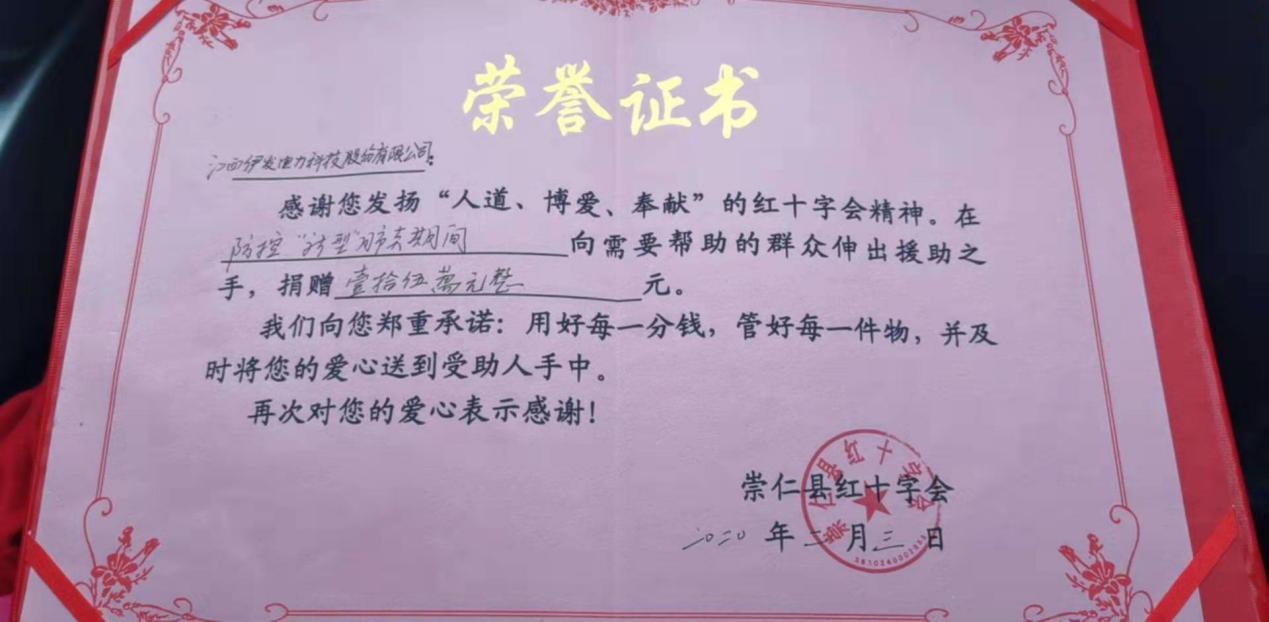 荣誉证书
江西伊发电力科技股份有限公司：
感谢您发扬“人道、博爱、奉献”的红十字会精神。在
防控“新型”肺炎期间向需要帮助的群众伸出援助之
手，捐赠壹拾伍萬元整元。
我们向您郑重承诺：用好每一分钱，管好每一件物，并及
时将您的爱心送到受助人手中。
再次对您的爱心表示感谢！
崇仁县红十字会
2020年二月三日
崇仁县红十字会